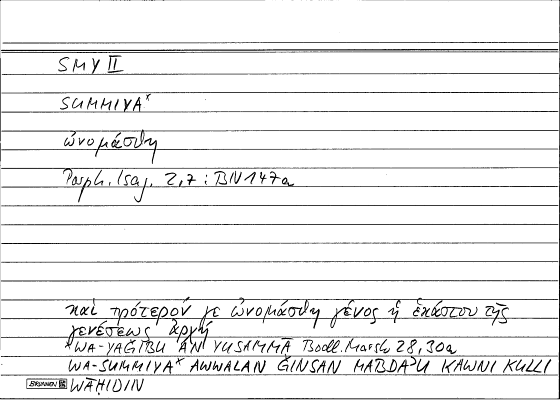 SMY II
SUMMIYAˣ
ὠνομάσθη
Porph. Isag. 2,7 : BN 147a
καὶ πρότερόν γε ὠνομάσθη γένος ἡ ἑκάστου τῆς
γενέσεως ἀρχή
ˣWA-YAĞIBU AN YUSAMMĀ Bodl. Marsh 28,30a
WA-SUMMIYAˣ AWWALAN ĞINSAN MABDAʾU KAWNI KULLI
BRUNNEN WĀḤIDIN